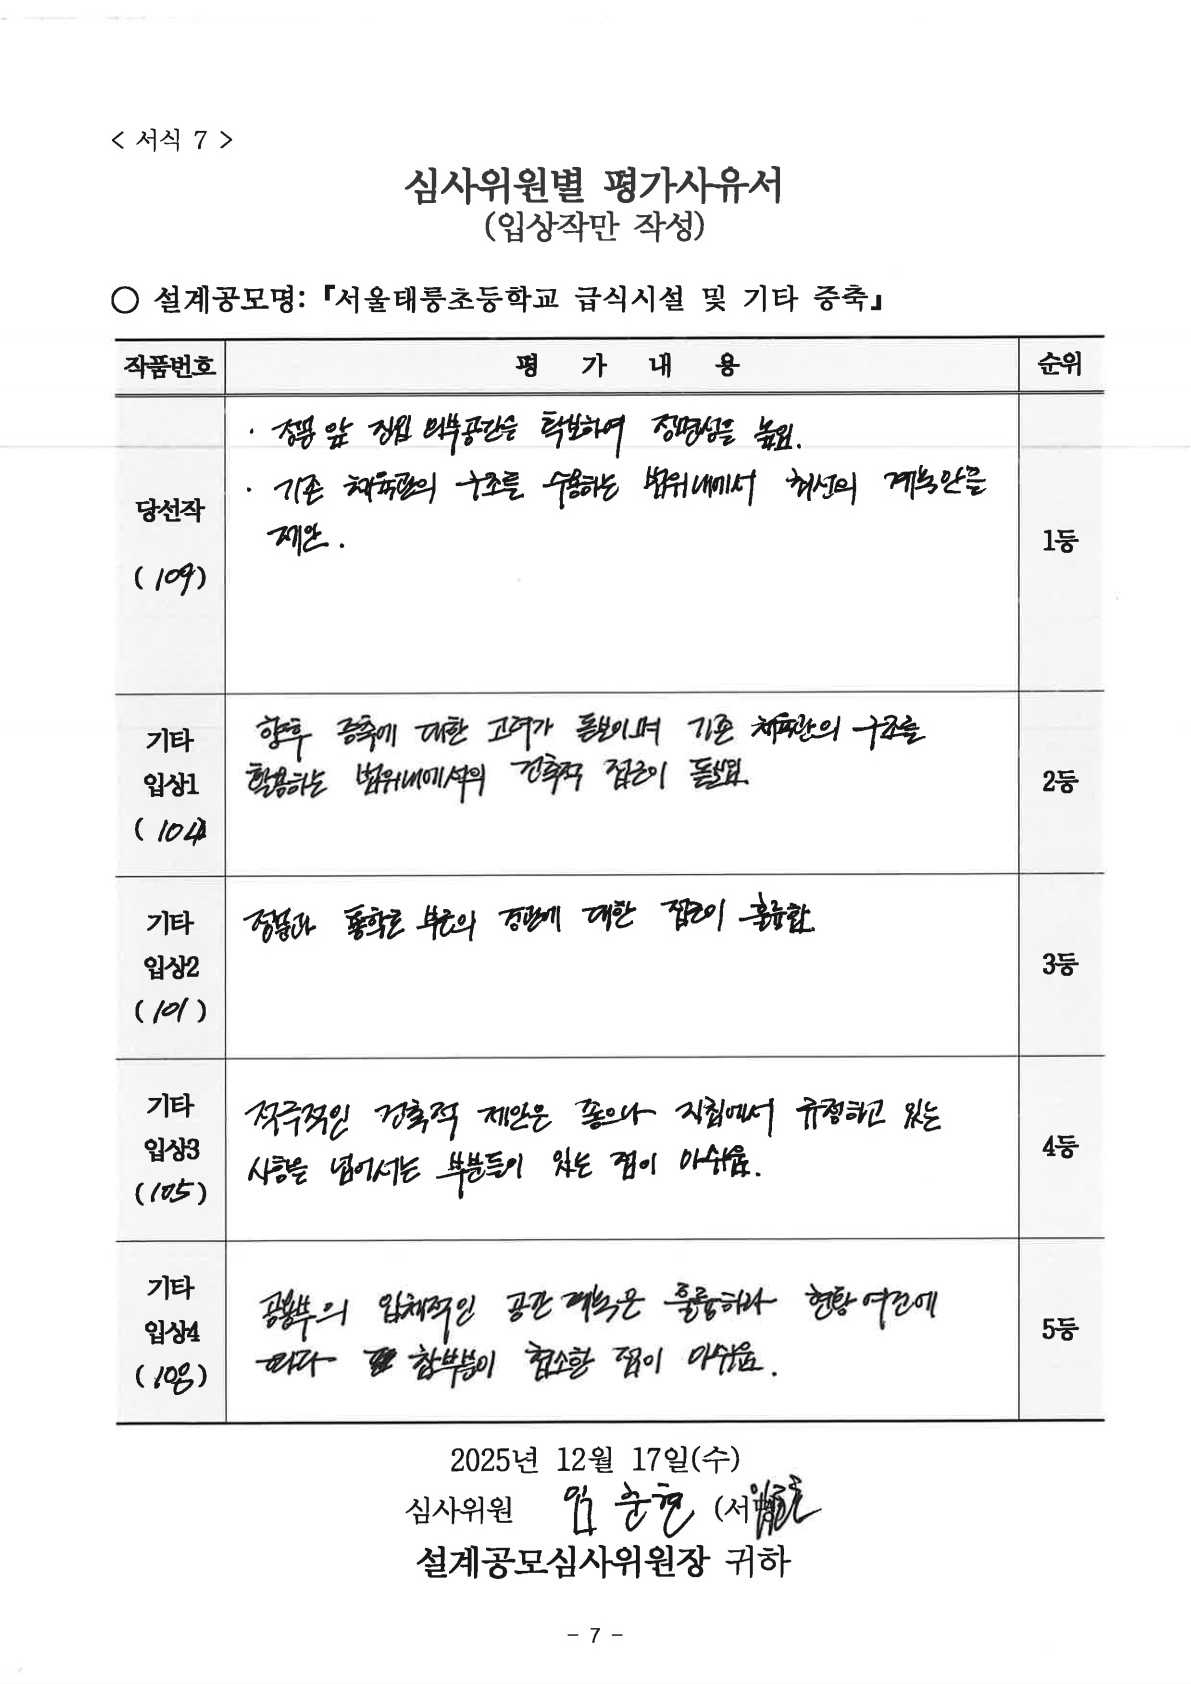 < 서식 7 >
심사위원별 평가사유서
(입상작만 작성)
○ 설계공모명:『서울태릉초등학교 급식시설 및 기타 증축』
작품번호 평 가 내 용 순위
당선작
(109)
· 정문 앞 진입 외부공간을 확보하여 정면성을 높임.
· 기존 체육관의 구조를 수용하는 범위내에서 최선의 계획안을
제안.
1등
기타
입상1
(104)
향후 증축에 대한 고려가 돋보이며 기존 체육관의 구조를
활용하는 범위내에서의 건축적 접근이 돋보임.
2등
기타
입상2
(101)
정문과 통학로 부근의 경관에 대한 접근이 훌륭함.
3등
기타
입상3
(105)
적극적인 건축적 제안은 좋으나 지침에서 규정하고 있는
사항을 넘어서는 부분들이 있는 점이 아쉬움.
4등
기타
입상4
(108)
공용부의 입체적인 공간 계획은 훌륭하나 현황 여건에
따라 합부분이 협소한 점이 아쉬움.
5등
2025년 12월 17일(수)
심사위원 임준현 (서
설계공모심사위원장 귀하
- 7 -